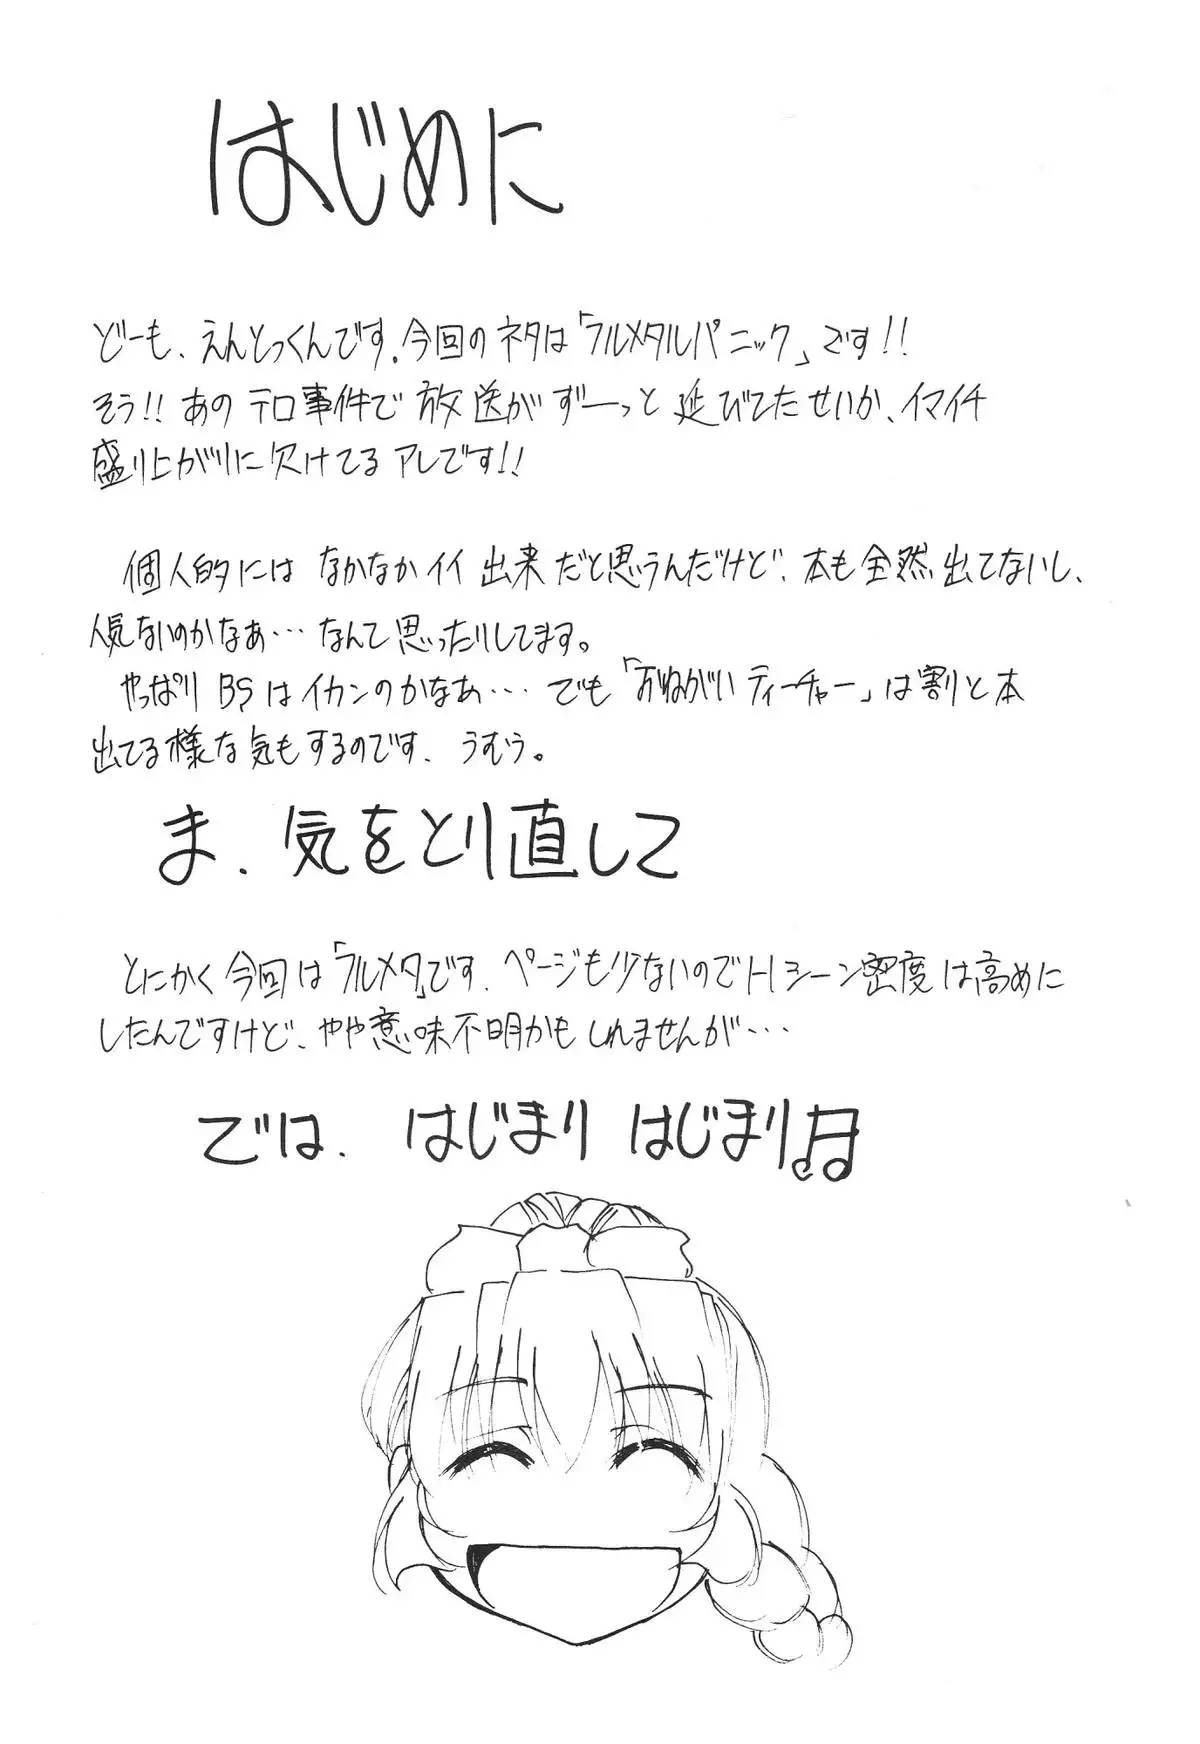 はじめに
どーも、えんとっくんです。今回のネタは「フルメタルパニック」です!!
そう!!あのテロ事件で放送がずーっと延びてたせいか、イマイチ
盛り上がりに欠けてるアレです!!
個人的にはなかなかイイ出来だと思うんだけど、本も全然出てないし、
人気ないのかなぁ…なんて思ったりしてます。
やっぱりBSはイカンのかなあ…でも「おねがいティーチャー」は割と本
出てる様な気もするのです、うむう。
ま、気をとり直して
とにかく今回は「フルメタ」です。ページも少ないので Hシーン密度は高めに
したんですけど、やや意味不明かもしれませんが…
では、はじまり はじまり♫